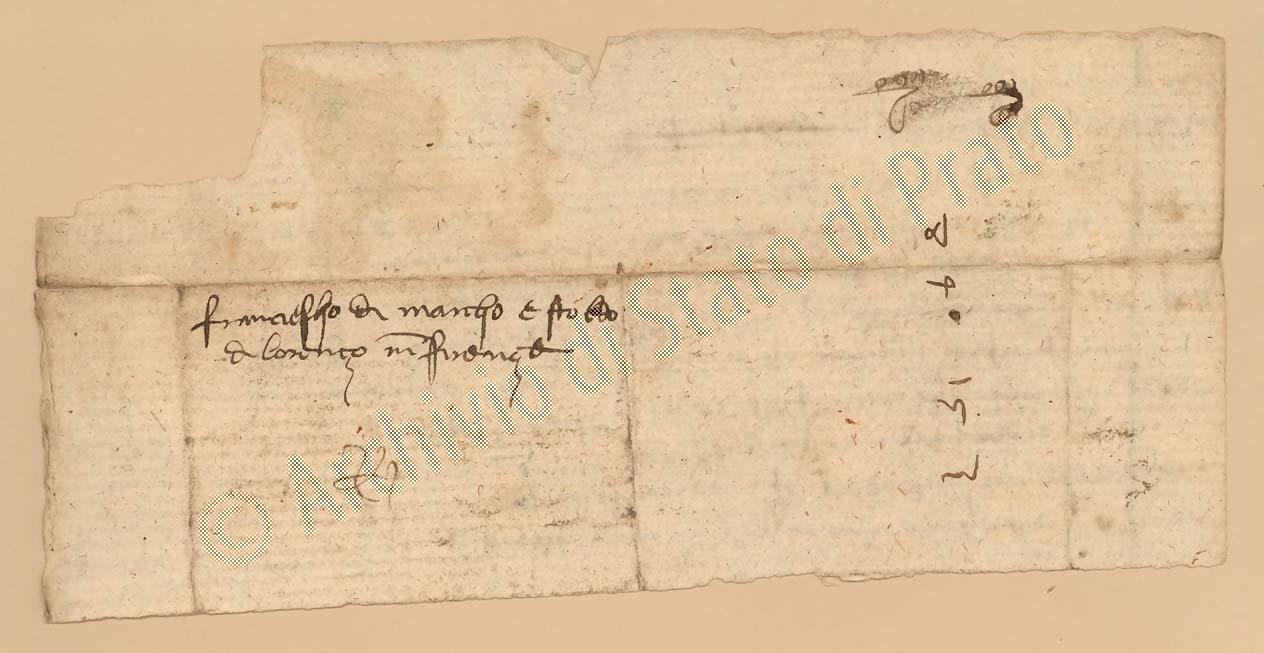 franciescho di marcho e stoldo
di lorenzo in firenze
© Archivio di Stato di Prato